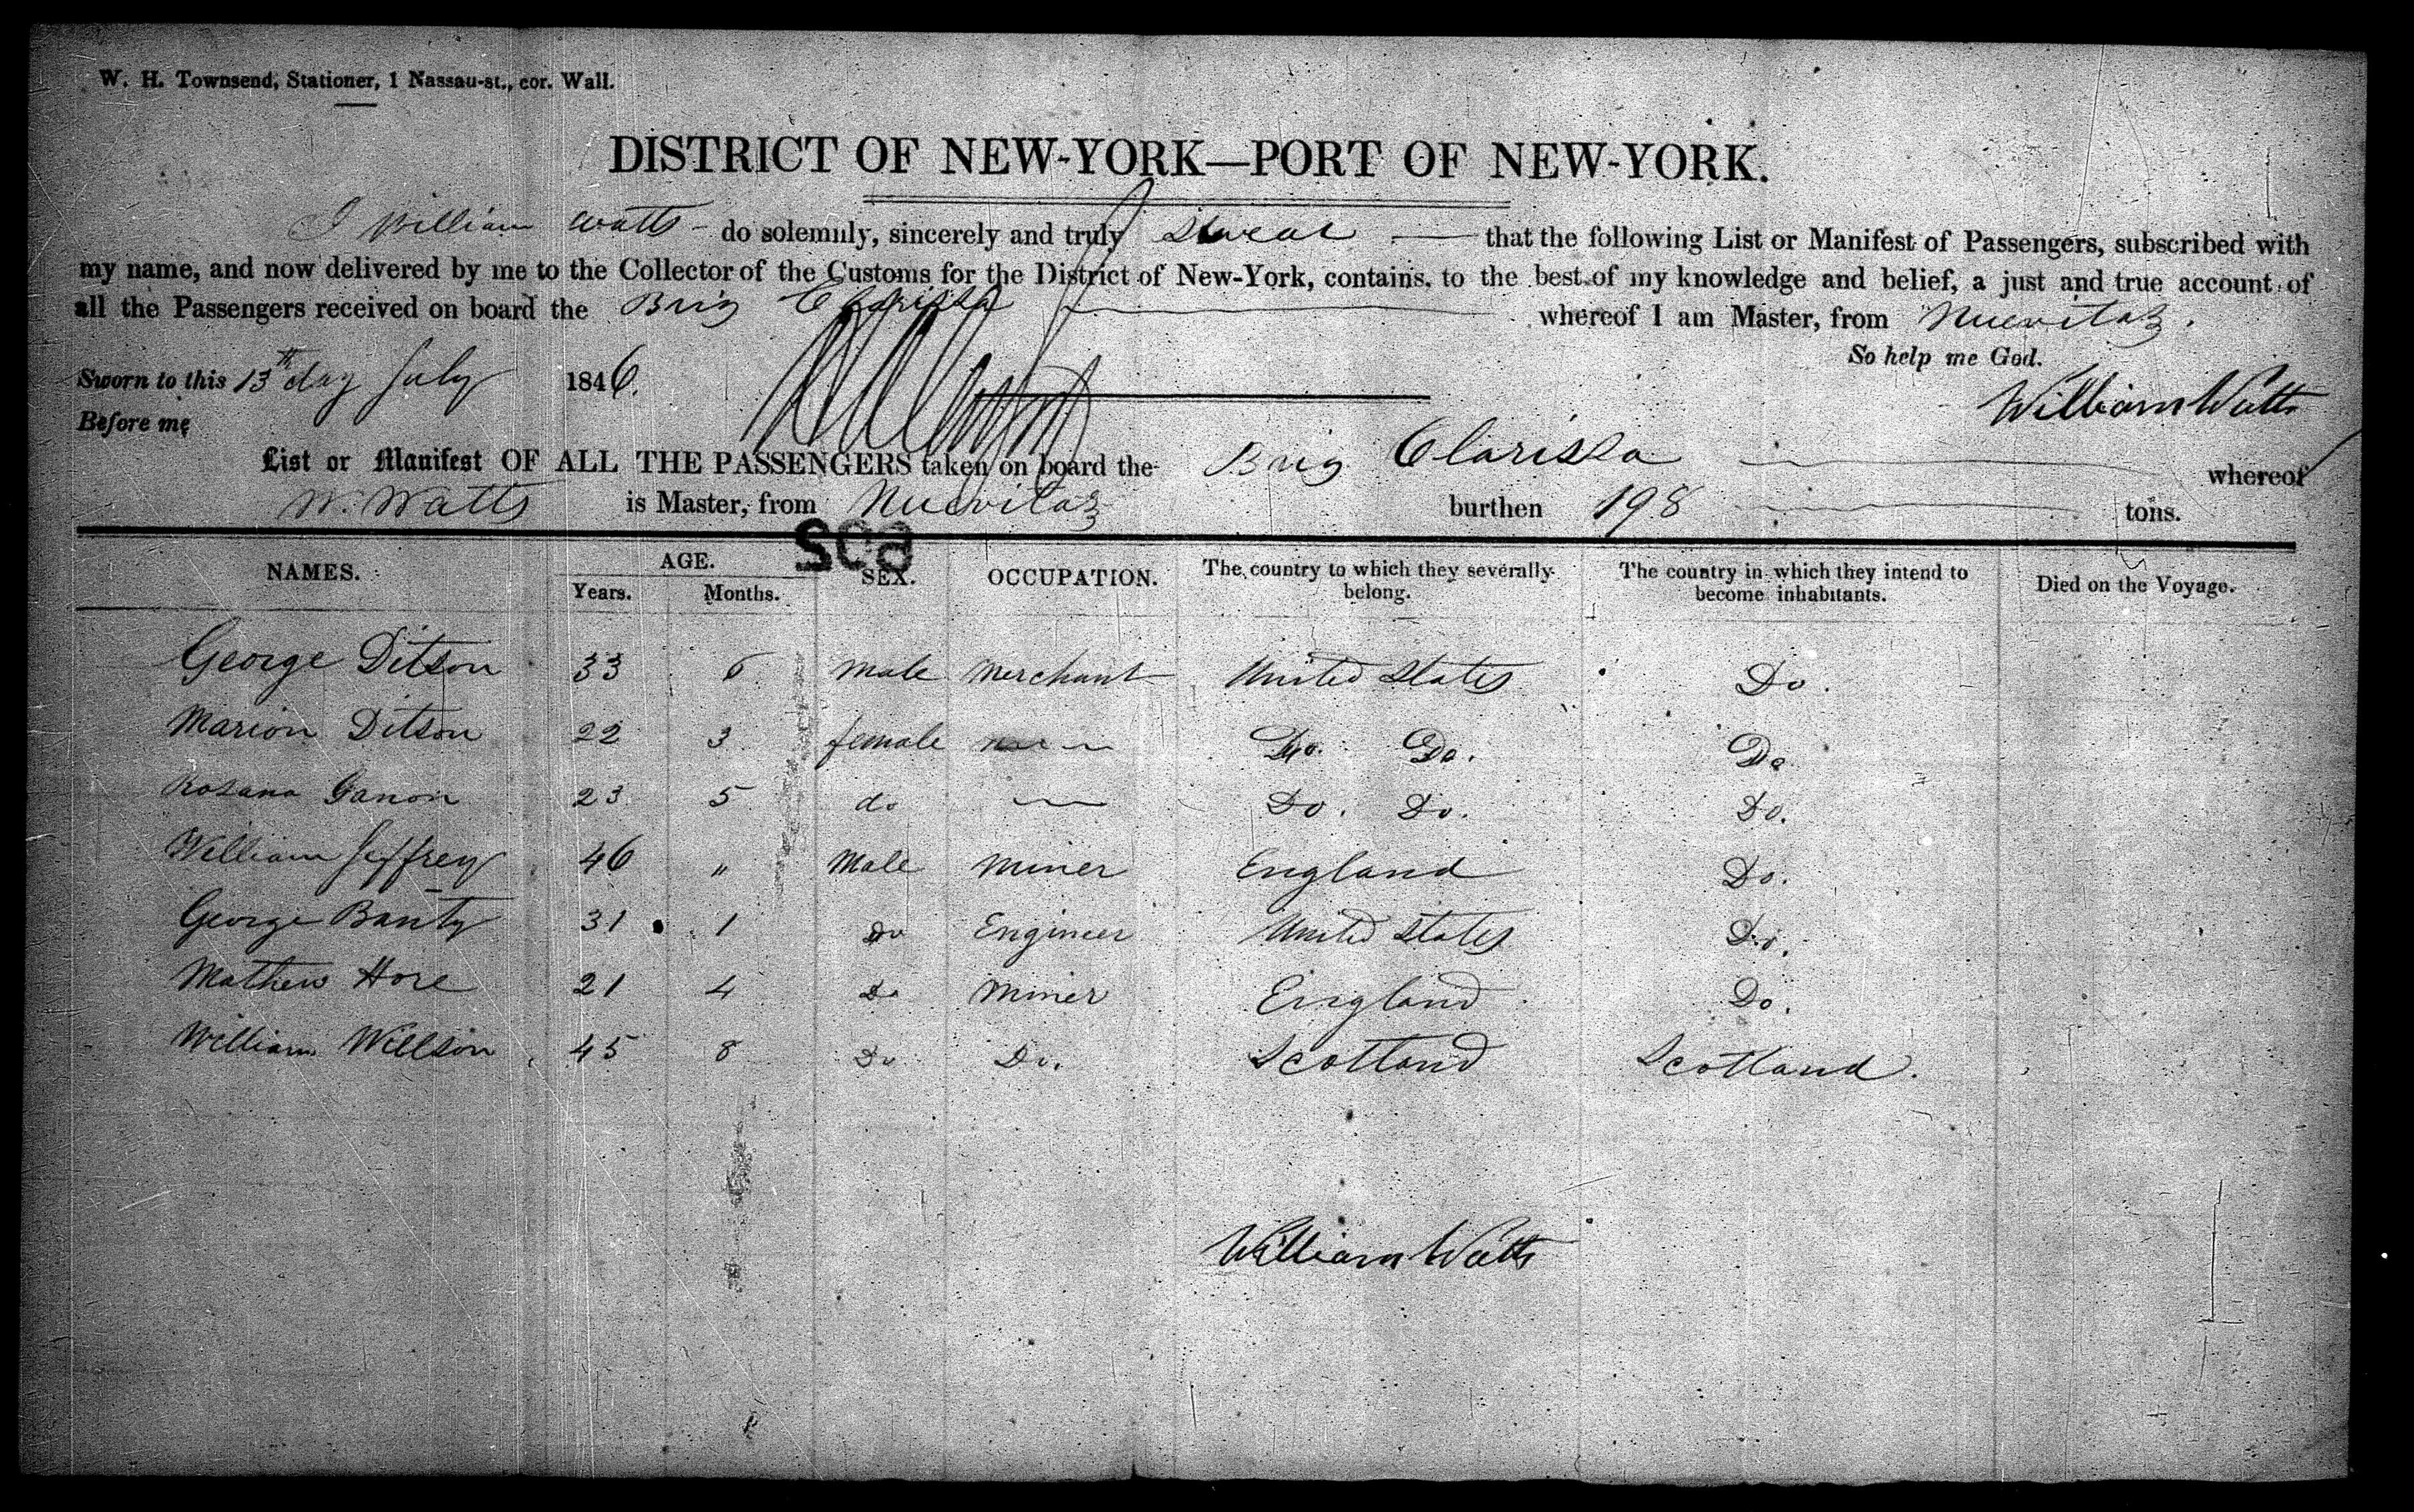 W. H. Townsend, Stationer, 1 Nassau-st., cor. Wall.
DISTRICT OF NEW-YORK—PORT OF NEW-YORK.
I William Watts - do solemnly, sincerely and truly Swear that the following List or Manifest of Passengers, subscribed with
my name, and now delivered by me to the Collector of the Customs for the District of New-York, contains, to the best of my knowledge and belief, a just and true account of
all the Passengers received on board the Brig Clarissa whereof I am Master, from Nuevitas.
So help me God.
Sworn to this 13th day July 1846.
William Watts
Before me
List or Manifest OF ALL THE PASSENGERS taken on board the Brig Clarissa whereof
W. Watts is Master, from Nuevitas burthen 198 tons.
NAMES. AGE. Years. Months. SEX. OCCUPATION. The country to which they severally belong. The country in which they intend to become inhabitants. Died on the Voyage.
George Ditson 33 6 Male Merchant United States Do.
Marion Ditson 22 3 female Do. Do. Do
Rosana Ganon 23 5 do Do. Do. Do.
William Jeffrey 46 " Male Miner England Do.
George Banty 31 1 Do Engineer United States Do.
Mathew Hore 21 4 Do Miner England Do.
William Willson 45 8 Do Do. Scotland Scotland.
William Watts